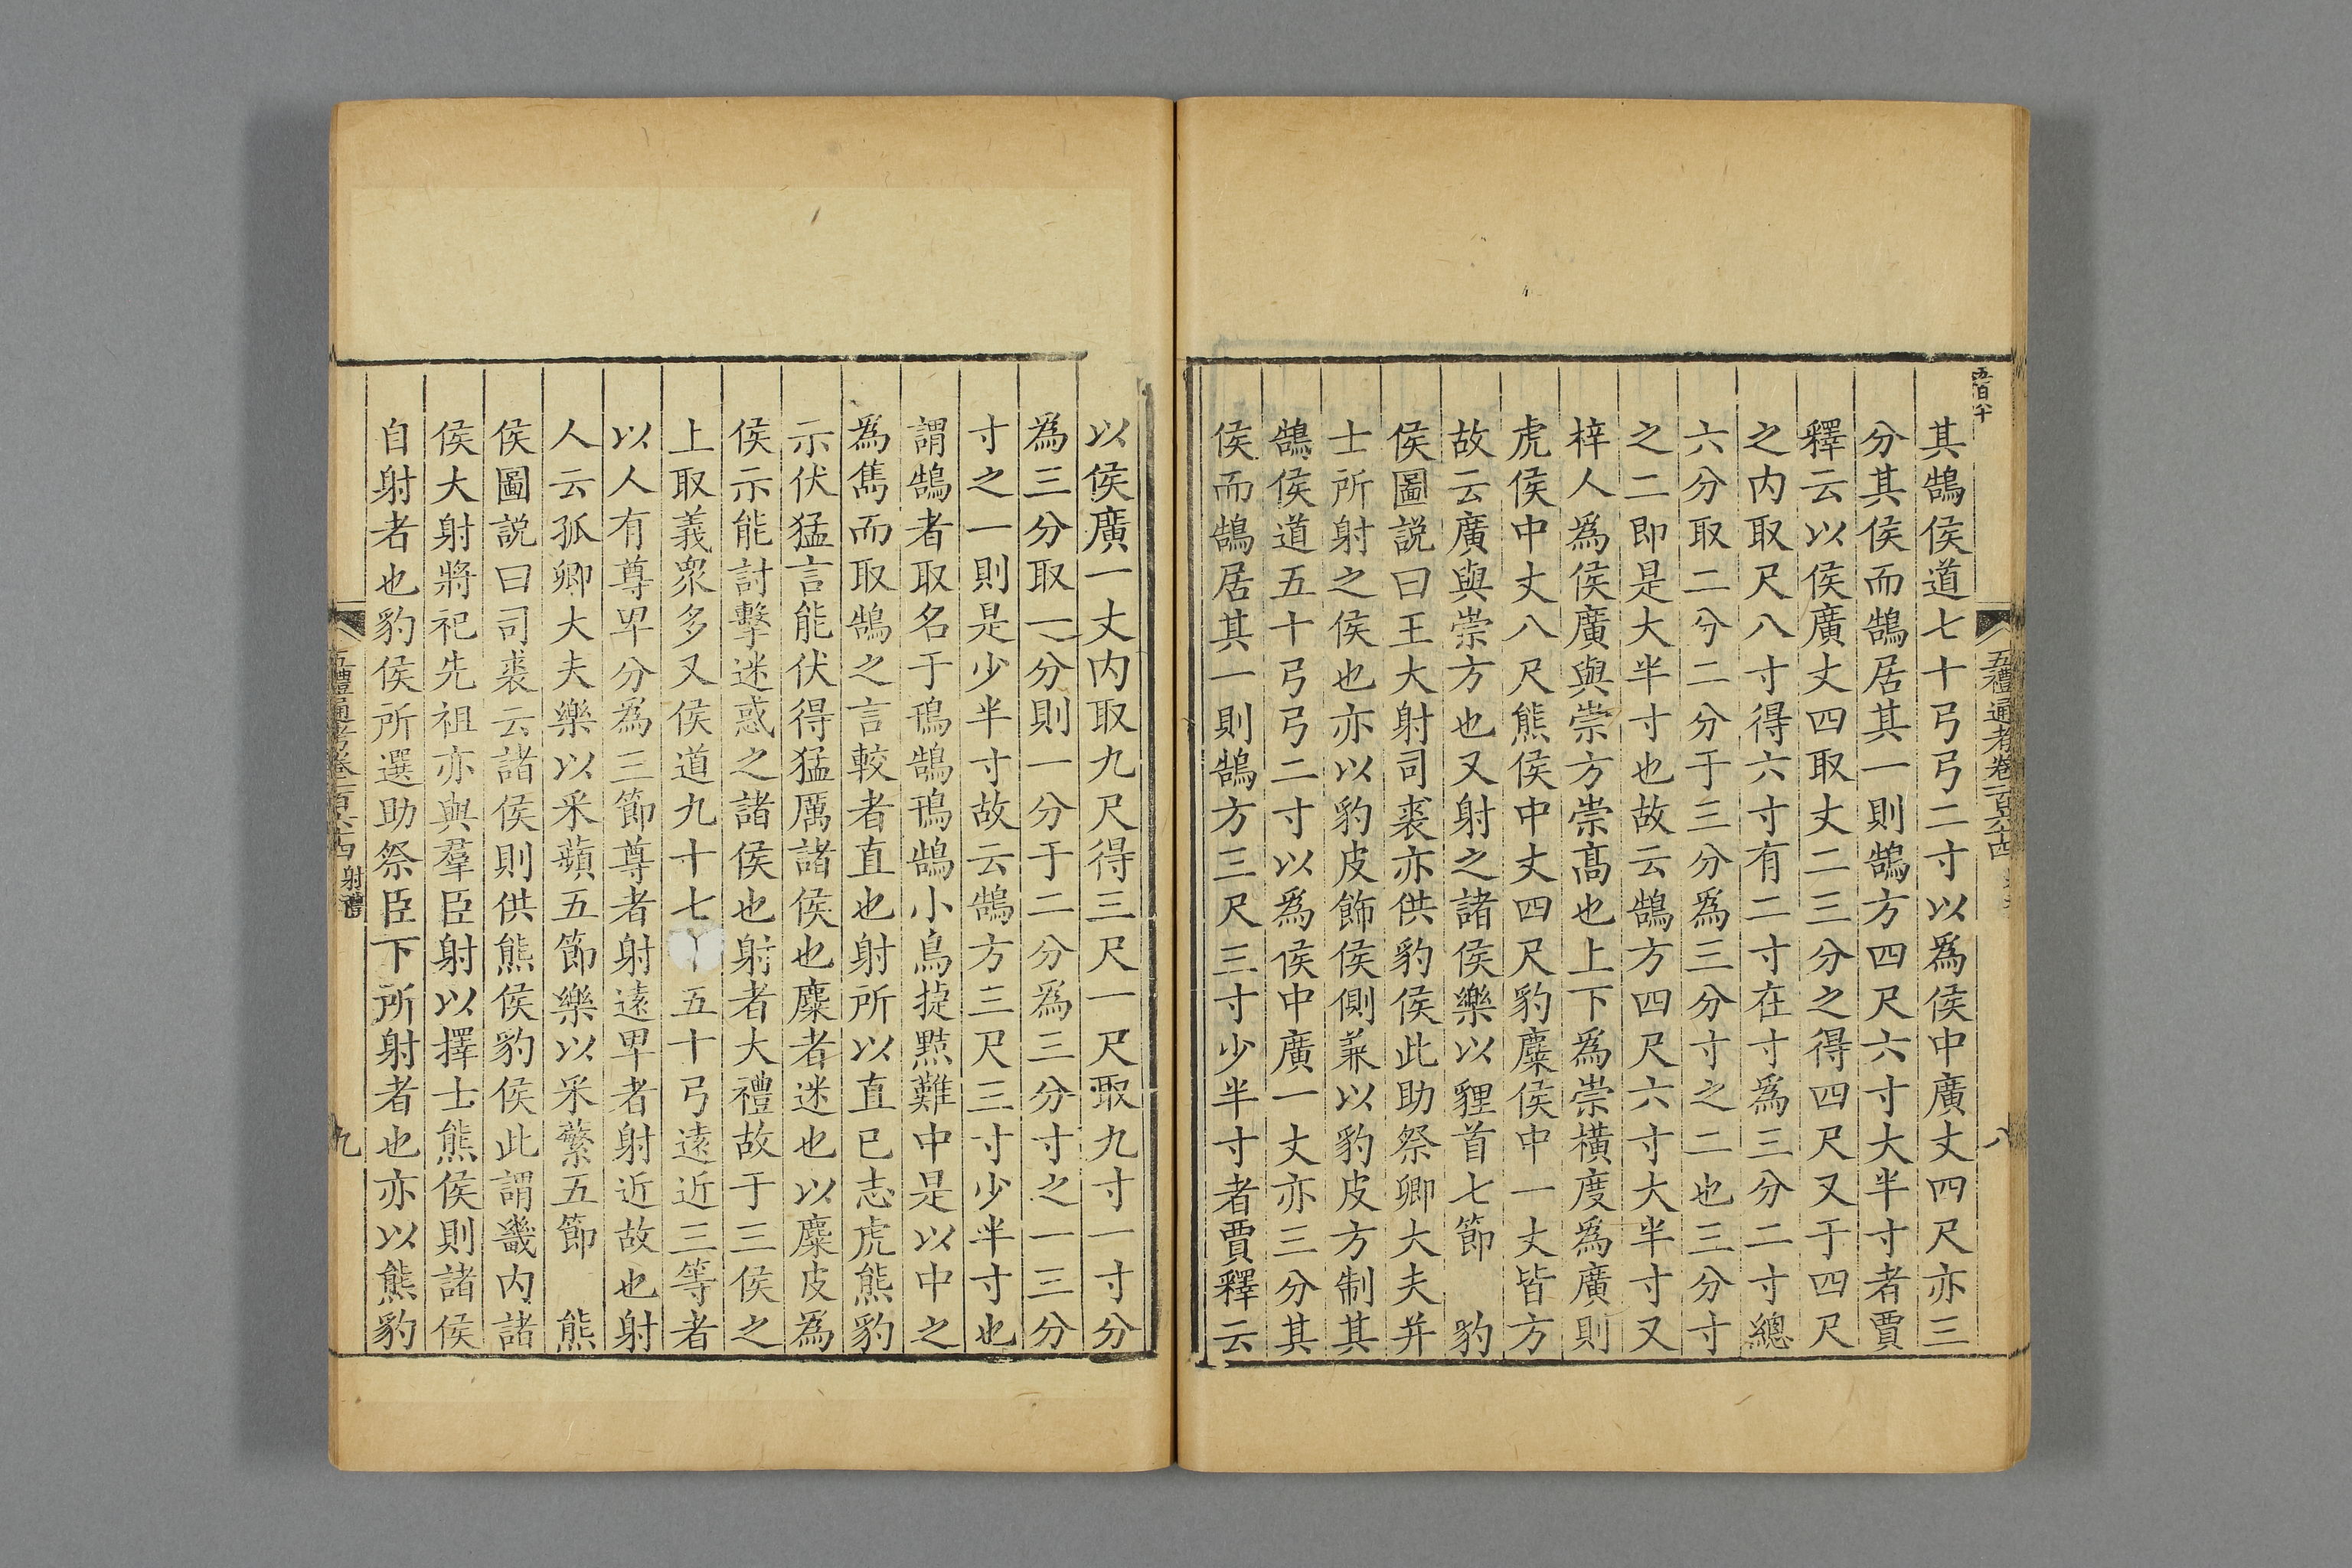 五百八十
五禮通考卷一百六十四
八
其鵠侯道七十弓弓二寸以爲侯中廣丈四尺亦三
分其侯而鵠居其一則鵠方四尺六寸大半寸者賈
釋云以侯廣丈四取丈二三分之得四尺又于四尺
之内取尺八寸得六寸有二寸在寸爲三分二寸總
六分取二分二分于三分爲三分寸之二也三分寸
之二即是大半寸也故云鵠方四尺六寸大半寸又
梓人爲侯廣與崇方崇髙也上下爲崇横度爲廣則
虎侯中丈八尺熊侯中丈四尺豹麋侯中一丈皆方
故云廣與崇方也又射之諸侯樂以貍首七節　豹
侯圖説曰王大射司裘亦供豹侯此助祭卿大夫并
士所射之侯也亦以豹皮飾侯側兼以豹皮方制其
鵠侯道五十弓弓二寸以爲侯中廣一丈亦三分其
侯而鵠居其一則鵠方三尺三寸少半寸者賈釋云
以侯廣一丈内取九尺得三尺一尺取九寸一寸分
爲三分取一分則一分于二分爲三分寸之一三分
寸之一則是少半寸故云鵠方三尺三寸少半寸也
謂鵠者取名于鳱鵠鳱鵠小鳥捷黠難中是以中之
爲雋而取鵠之言較者直也射所以直已志虎熊豹
示伏猛言能伏得猛厲諸侯也麋者迷也以麋皮爲
侯示能討擊迷惑之諸侯也射者大禮故于三侯之
上取義衆多又侯道九十七五十弓遠近三等者
以人有尊卑分爲三節尊者射遠卑者射近故也射
人云孤卿大夫樂以采蘋五節樂以采蘩五節　熊
侯圖説曰司裘云諸侯則供熊侯豹侯此謂畿内諸
侯大射將祀先祖亦與羣臣射以擇士熊侯則諸侯
自射者也豹侯所選助祭臣下所射者也亦以熊豹
五禮通考卷一百六十四
射禮
九